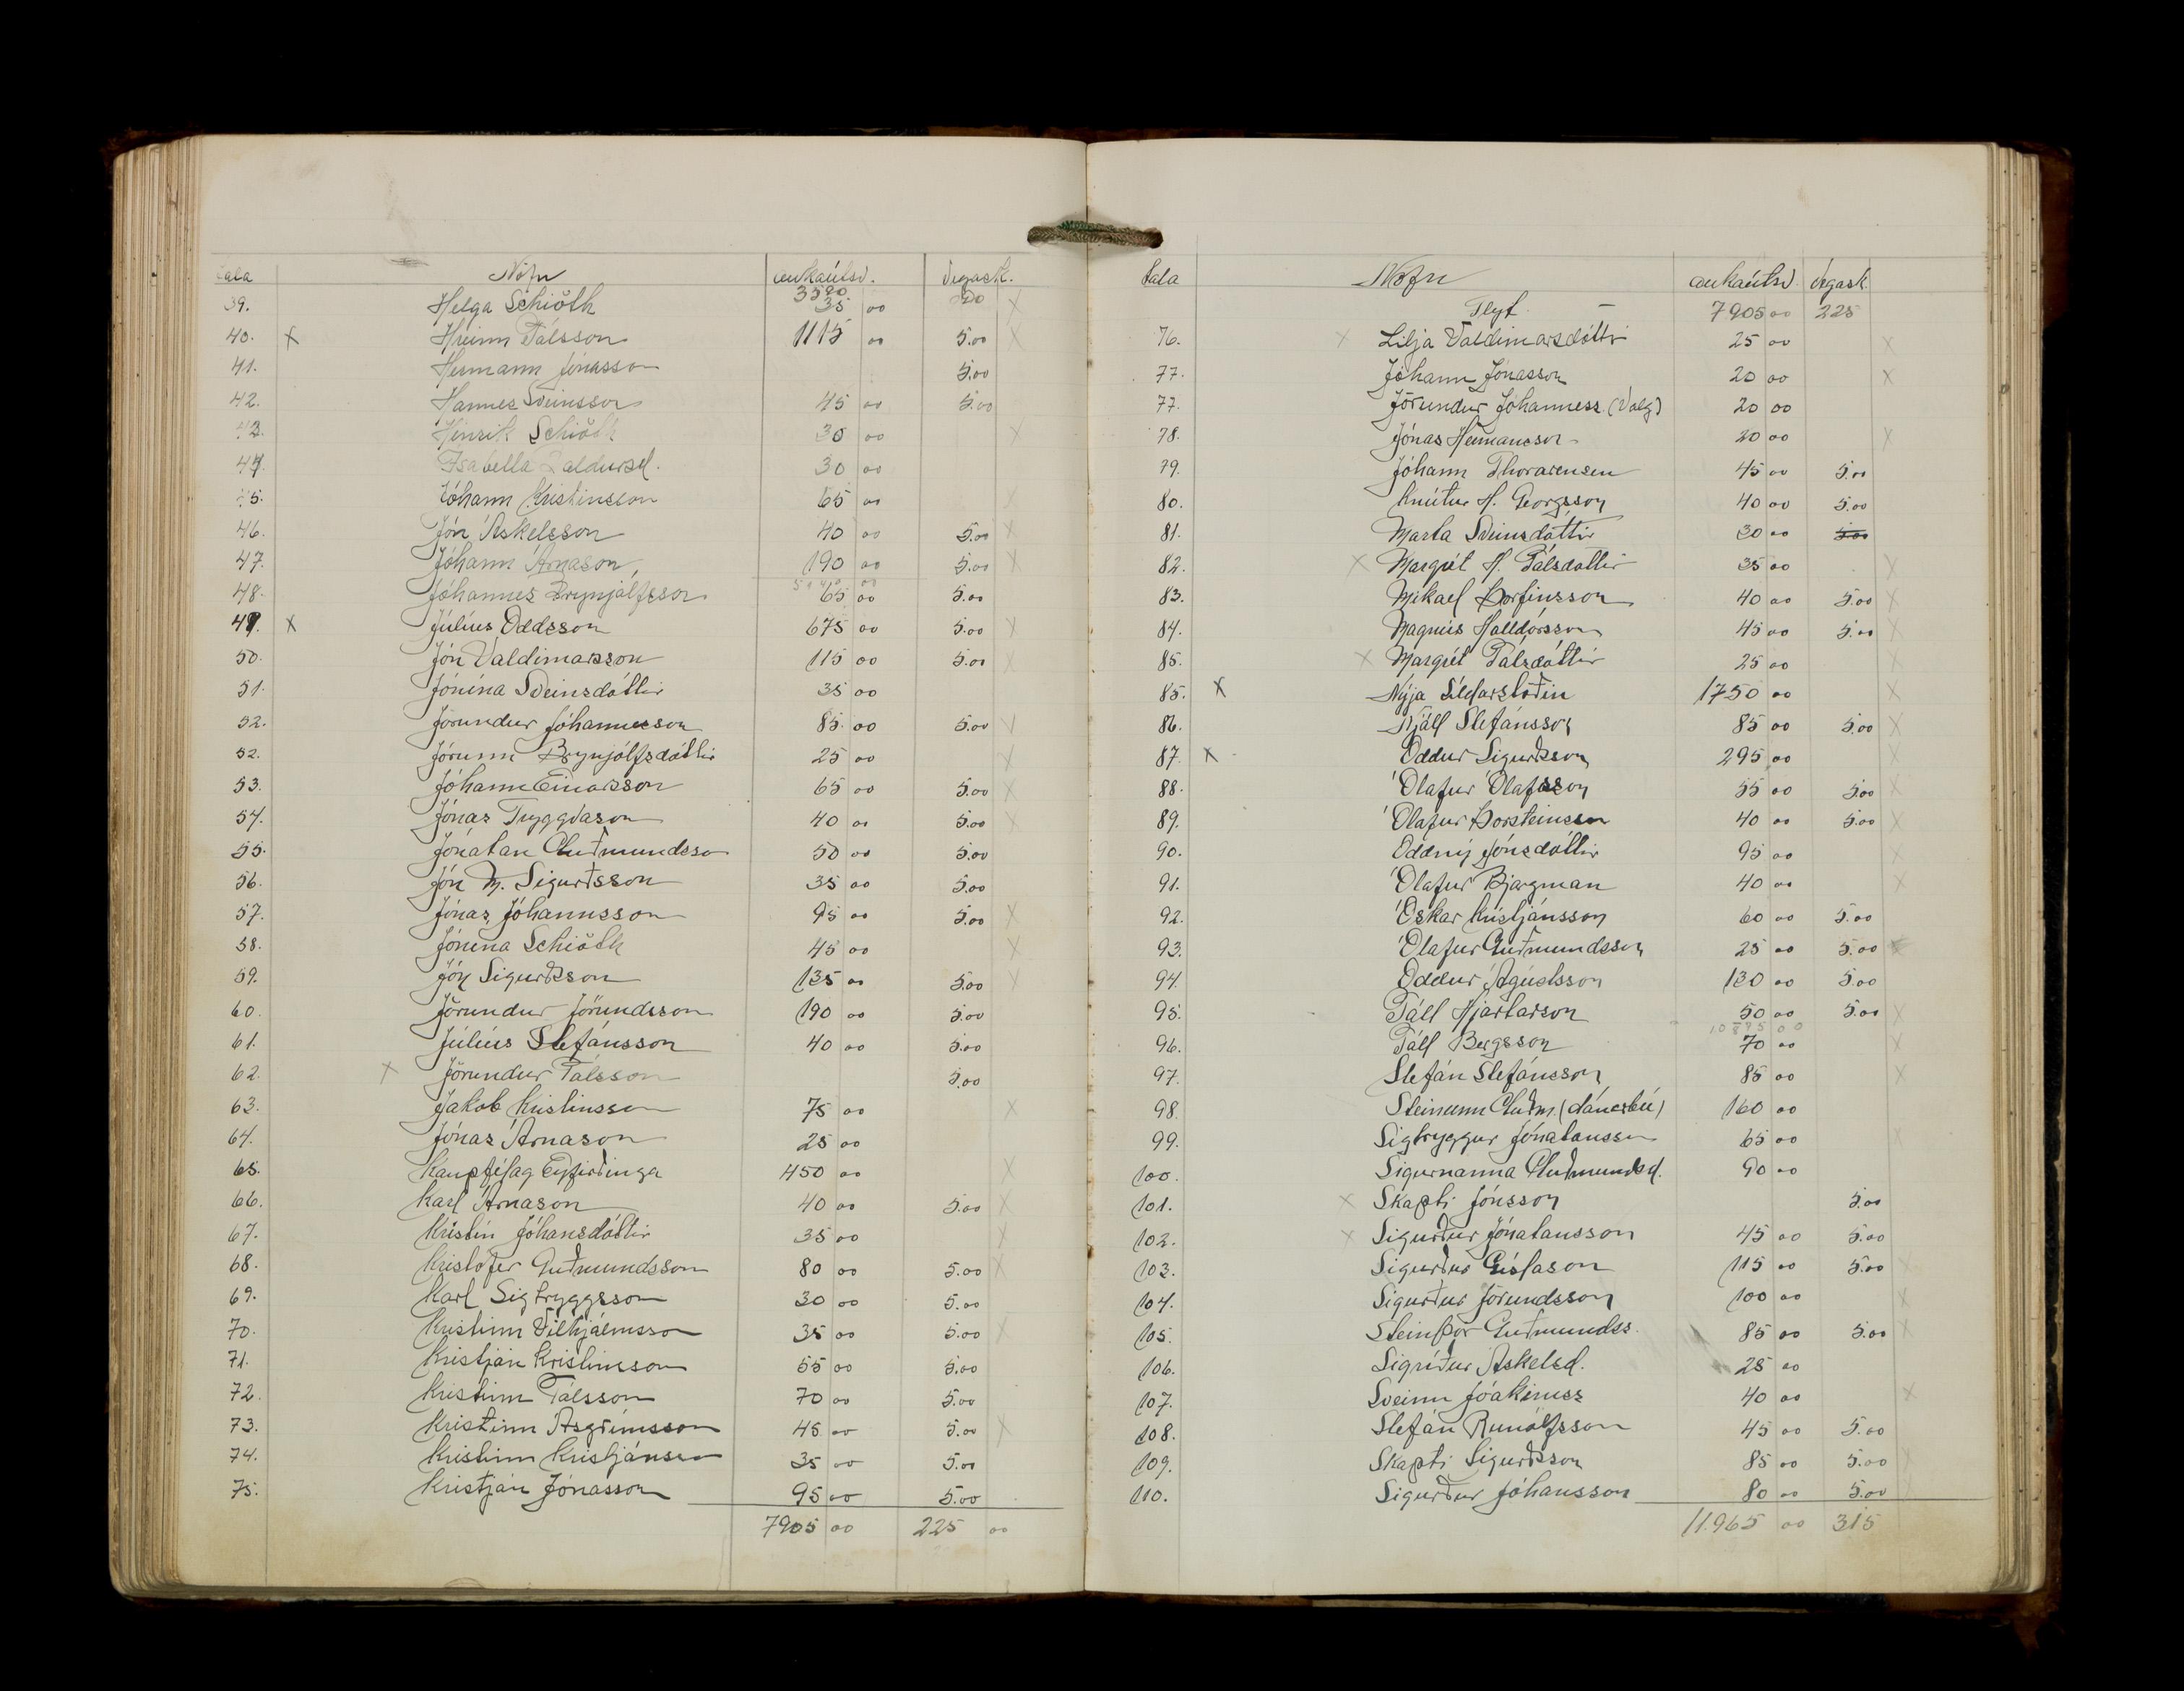 tala Nöfn aukaútsv. vegask.
3590 90
39. Helga Schiöth 35 00 X
40. X Hreinn Pálsson 1115 00 5.00 X
41. Hermann Jónasson 5.00
42. Hannes Sveinsson 45 00 5.00
43. Hinrik Schiöth 30 00 X
44. Isabella Baldursd. 30 00
45. Jóhann Kristinsson 65 00
46. Jón Áskelsson 40 00 5.00 X
47. Jóhann Árnason 190 00 5.00 X
48. Jóhannes Brynjólfsson 65 00 5.00
49. X Júlíus Oddsson 675 00 5.00 X
50. Jón Valdimarsson 115 00 5.00 X
51. Jónína Sveinsdóttir 35 00
52. Jörundur Jóhannesson 85 00 5.00 X
52. Jórunn Brynjólfsdóttir 25 00 X
53. Jóhann Einarsson 65 00 5.00 X
54. Jónas Tryggvason 40 00 5.00 X
55. Jónatan Guðmundsso 50 00 5.00
56. Jón M. Sigurðsson 35 00 5.00
57. Jónas Jóhannsson 95 00 5.00 X
58. Jónína Schiöth 45 00 X
59. Jón Sigurðsson 135 00 5.00 X
60. Jörundur Jörundsson 190 00 5.00
61. Júlíus Stefánsson 40 00 5.00
62. X Jörundur Pálsson 5.00
63. Jakob Kristinsson 75 00 X
64. Jónas Árnason 25 00
65. Kaupfélag Eyfirðinga 450 00 X
66. Karl Árnason 40 00 5.00 X
67. Kristín Jóhansdóttir 35 00 X
68. Kristófer Guðmundsson 80 00 5.00 X
69. Karl Sigtryggsson 30 00 5.00
70. Kristinn Vilhjálmsson 35 00 5.00 X
71. Kristján Kristinsson 55 00 5.00
72. Kristinn Pálsson 70 00 5.00
73. Kristinn Ásgrímsson 45 00 5.00 X
74. Kristinn Kristjánsson 35 00 5.00
75. Kristján Jónasson 95 00 5.00
7905 00 225 00
tala Nöfn aukaútsv. vegask.
Flyt — 7905 00 225
76. X Lilja Valdimarsdóttir 25 00 X
77. Jóhann Jónasson 20 00 X
77. Jörundur Jóhanness. (Valg) 20 00
78. Jónas Hermansson 20 00 X
79. Jóhann Thorarensen 45 00 5.00
80. Knútur H. Georgsson 40 00 5.00
81. Marta Sveinsdóttir 30 00 5.00
82. X Margrét H. Pálsdóttir 35 00 X
83. Mikael Þorfinsson 40 00 5.00 X
84. Magnús Halldórsson 45 00 5.00 X
85. X Margrét Pálsdóttir 25 00 X
85. X Nýja Síldarstöðin 1750 00 X
86. Njáll Stefánsson 85 00 5.00 X
87. X Oddur Sigurðsson 295 00 X
88. Ólafur Ólafsson 55 00 5.00 X
89. Ólafur Þorsteinsson 40 00 5.00 X
90. Oddný Jónsdóttir 95 00 X
91. Ólafur Bjargman 40 00 X
92. Óskar Kristjánsson 60 00 5.00
93. Ólafur Guðmundsson 25 00 5.00 X
94. Oddur Ágústsson 130 00 5.00
95. Páll Hjartarson 50 00 5.00 X
10895 00
96. Páll Bergsson 70 00 X
97. Stefán Stefánsson 85 00 X
98. Steinunn Guðm. (dánarbú) 160 00
99. Sigtryggur Jónatansson 65 00 X
100. Sigurnanna Guðmundsd. 90 00
101. X Skapti Jónsson 5.00
102. X Sigurður Jónatansson 45 00 5.00
103. Sigurður Gíslason 115 00 5.00 X
104. Sigurður Jörundsson 100 00 X
105. Steinþór Guðmundss. 85 00 5.00 X
106. Sigríður Áskelsd. 25 00
107. Sveinn Jóakimss 40 00 X
108. Stefán Runólfsson 45 00 5.00
109. Skapti Sigurðsson 85 00 5.00 X
110. Sigurður Jóhansson 80 00 5.00 X
11.965 00 315